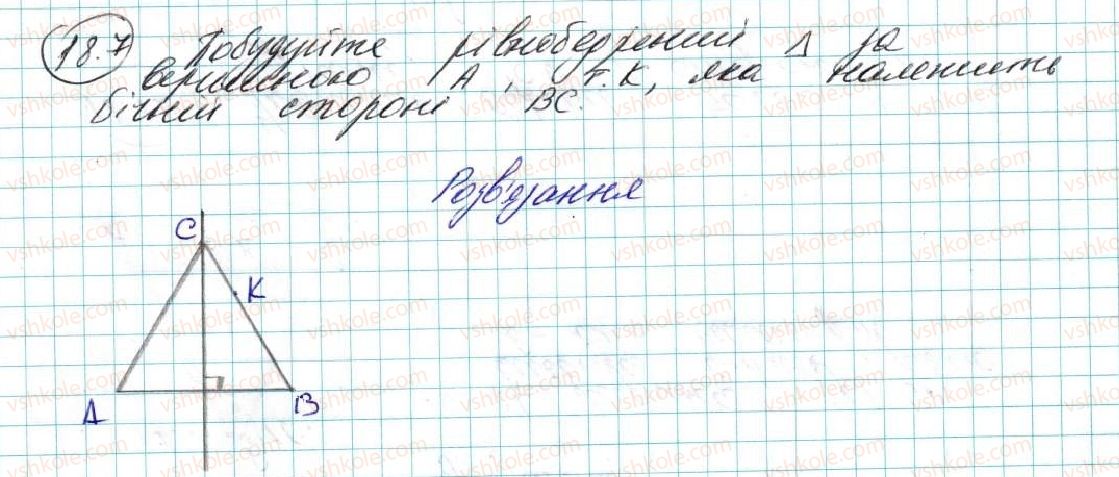 18.7 Побудуйте рівнобедрений Δ за
вершиною А, т. К, яка належить
бічній стороні ВС.
Розв'язання
C
K
A
B